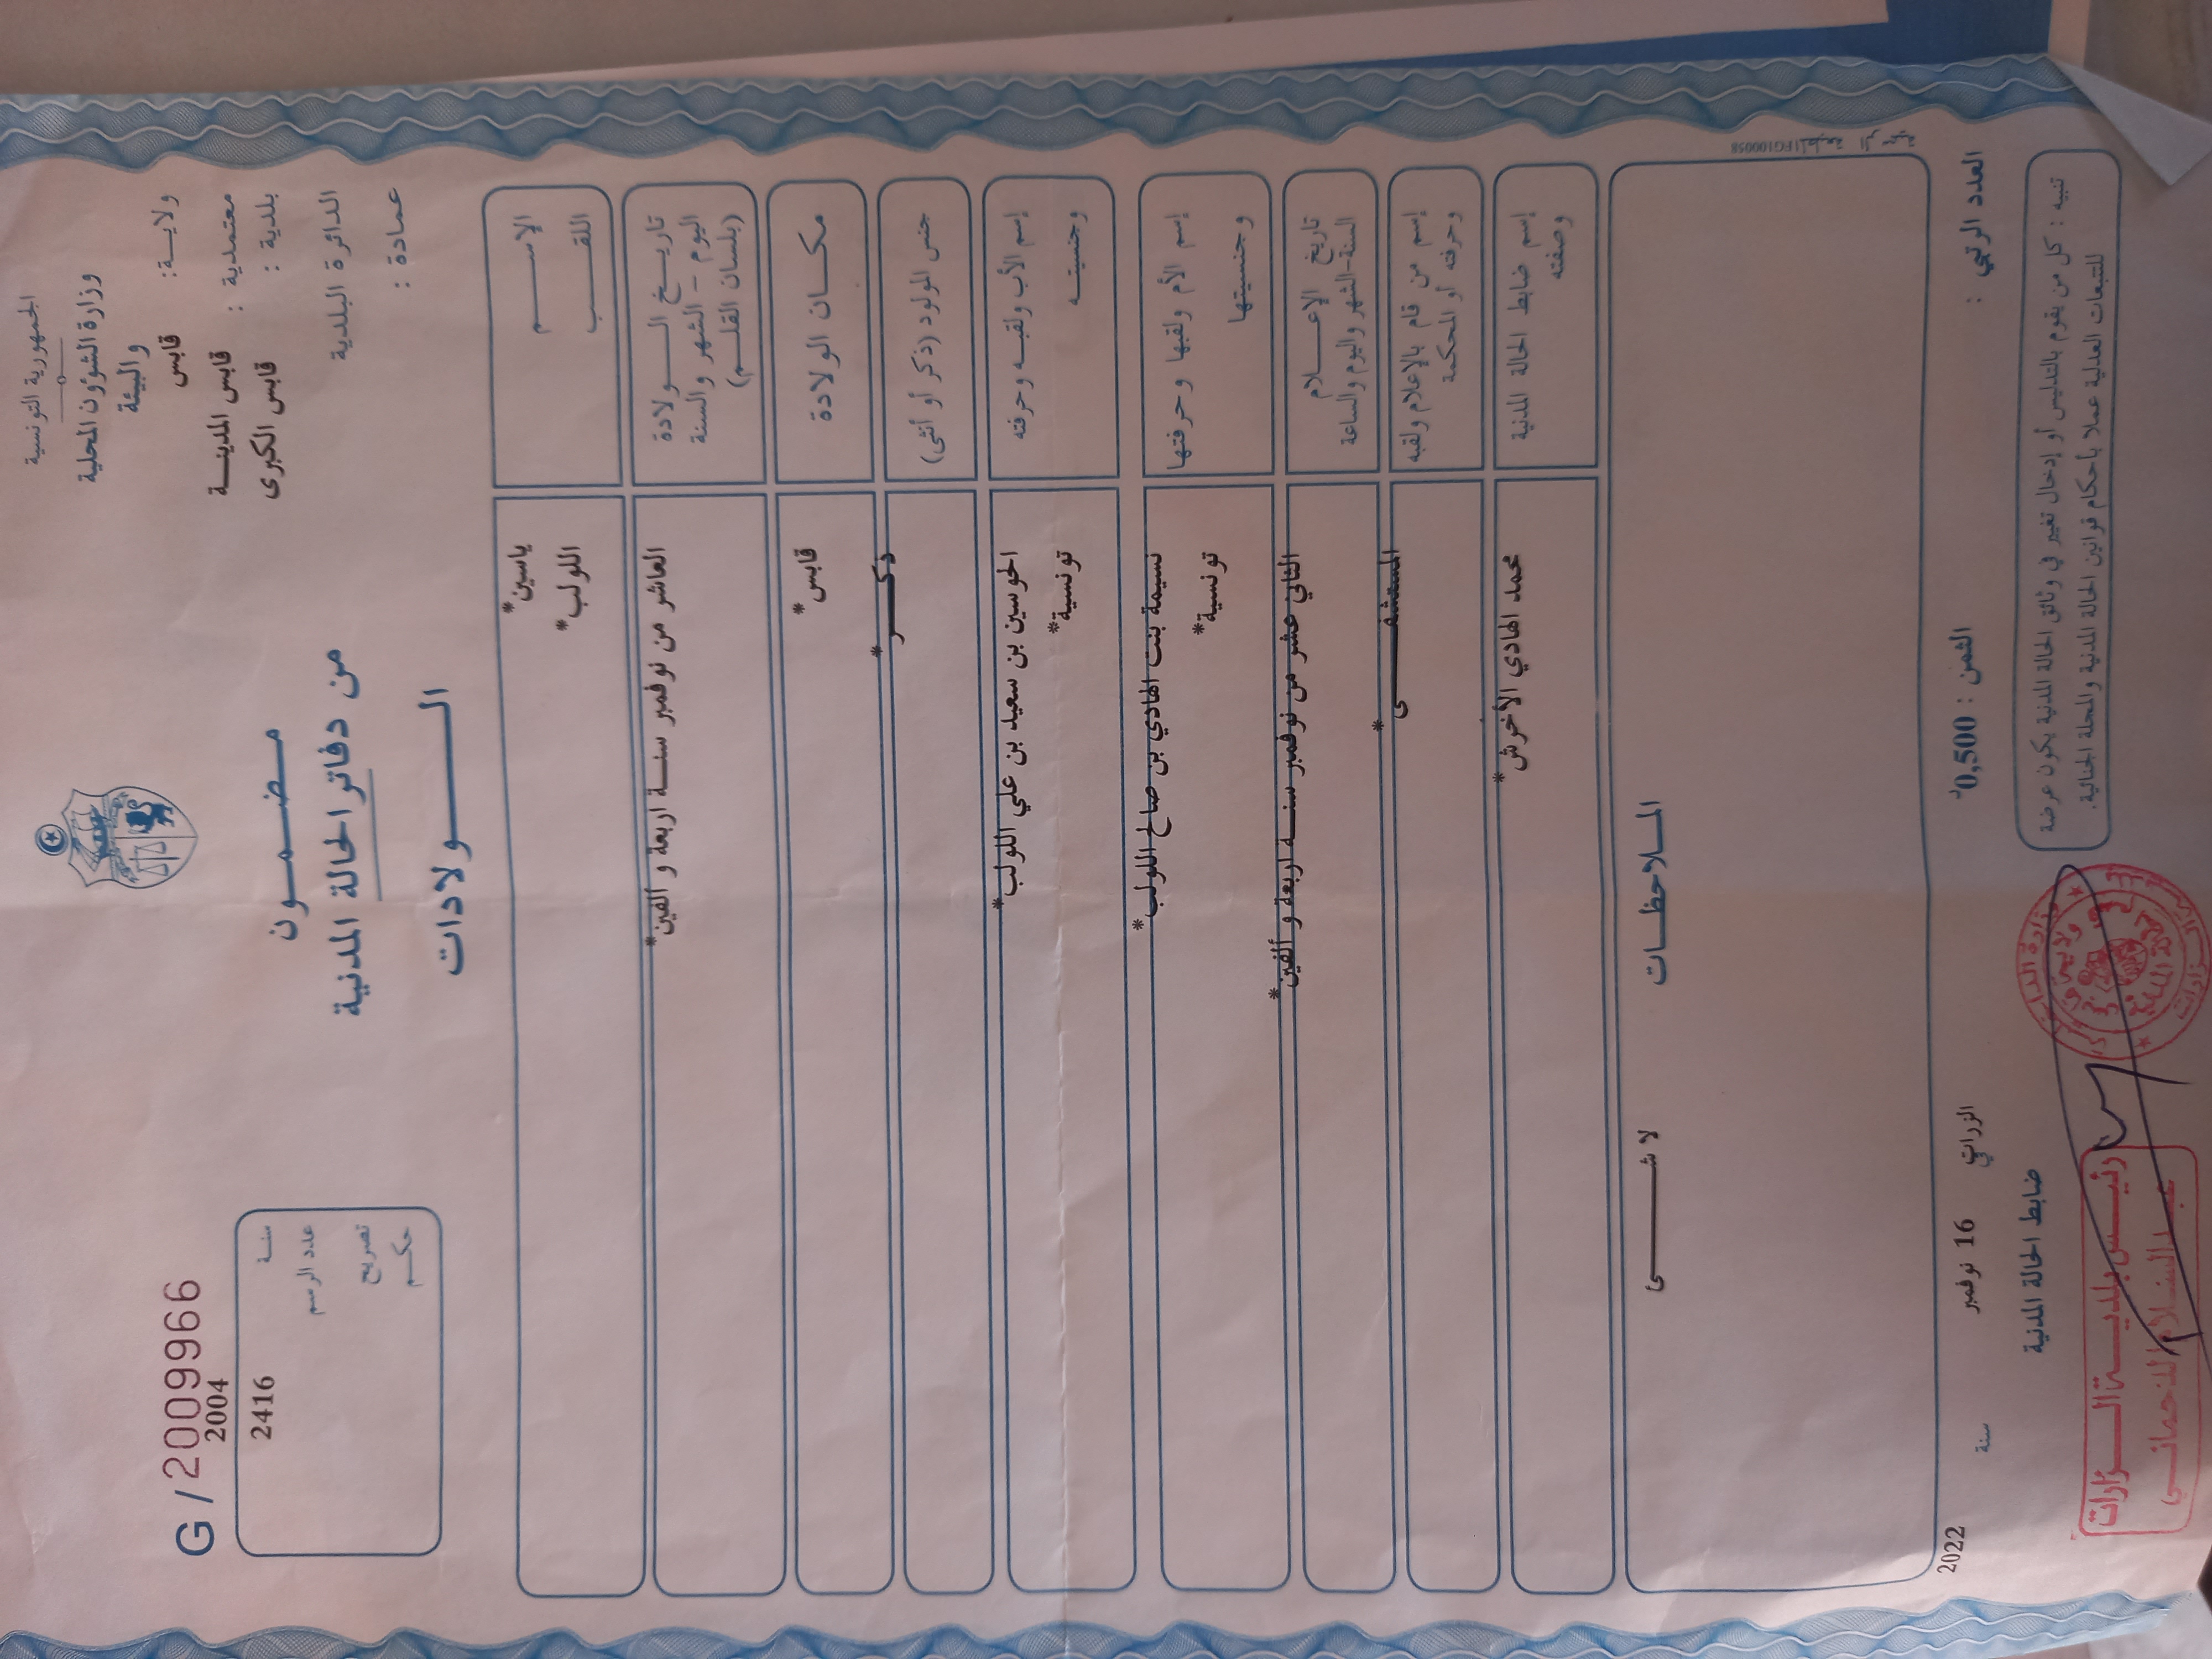 الجمهورية التونسية
وزارة الشؤون المحلية
والبيئة
ولاية: قابس
معتمدية : قابس المدينة
بلدية : قابس الكبرى
الدائرة البلدية
عمادة :
مضمون
من دفاتر الحالة المدنية
الولادات
G / 2009966
2004
سنة
2416
عدد الرسم
تصريح
حكم
الإسم
ياسين*
اللقب
اللولب*
تاريخ الولادة
اليوم - الشهر والسنة
(بلسان القلم)
العاشر من نوفمبر سنة اربعة و الفين*
مكان الولادة
قابس*
جنس المولود (ذكر أو أنثى)
ذكر*
إسم الأب ولقبه وحرفته
الحوسين بن سعيد بن علي اللولب*
وجنسيته
تونسية*
إسم الأم ولقبها وحرفتها
نسيمة بنت الهادي بن صالح اللولب*
وجنسيتها
تونسية*
تاريخ الإعلام
السنة-الشهر واليوم والساعة
الثاني عشر من نوفمبر سنة اربعة و ألفين*
إسم من قام بالإعلام ولقبه
وحرفته أو المحكمة
المستشفى*
إسم ضابط الحالة المدنية
وصفته
محمد الهادي الأخرش*
الملاحظات
لا شئ
العدد الرتبي :
الثمن : 0,500د
الزراتي 16 نوفمبر سنة 2022
ضابط الحالة المدنية
تنبيه : كل من يقوم بالتدليس أو إدخال تغيير في وثائق الحالة المدنية يكون عرضة
للتتبعات العدلية عملا بأحكام قوانين الحالة المدنية والمجلة الجنائية.
رئيس بلدية الزارات
عبد السلام الدخماني